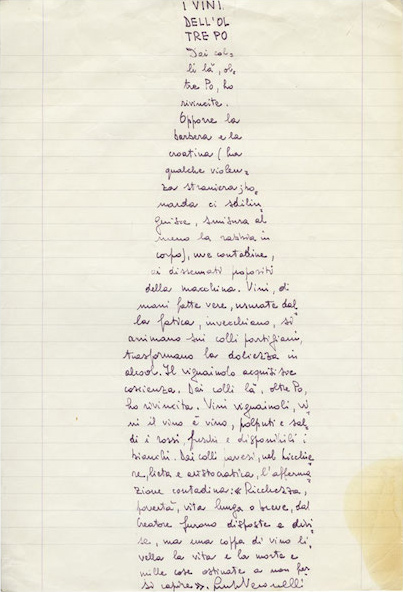 I VINI
DELL'OL
TRE PO
Dai col=
li là, ol=
tre Po, ho
rivincite.
Opporre la
barbera e la
croatina (ha
qualche violen=
za straniera; bo=
narda ci sdilin=
guisce, smisura al
meno la rabbia in
corpo), uve contadine,
ai dissennati propositi
della macchina. Vini, di
mani fatte vere, usurate dal=
la fatica, invecchiano, si
animano sui colli partigiani,
trasformano la dolcezza in
alcool. Il vignaiolo acquisisce
coscienza. Dai colli là, oltre Po,
ho rivincita. Vini vignaioli, vi=
ni il vino è vino, polputi e sal=
di i rossi, freschi e disponibili i
bianchi. Dai colli pavesi, nel bicchie=
re, lieta e aristocratica, l'afferma=
zione contadina: « Ricchezza,
povertà, vita lunga o breve, dal
Creatore furono disposte e divi=
se, ma una coppa di vino li=
vella la vita e la morte e
mille cose ostinate a non far=
si capire ». Luigi Veronelli